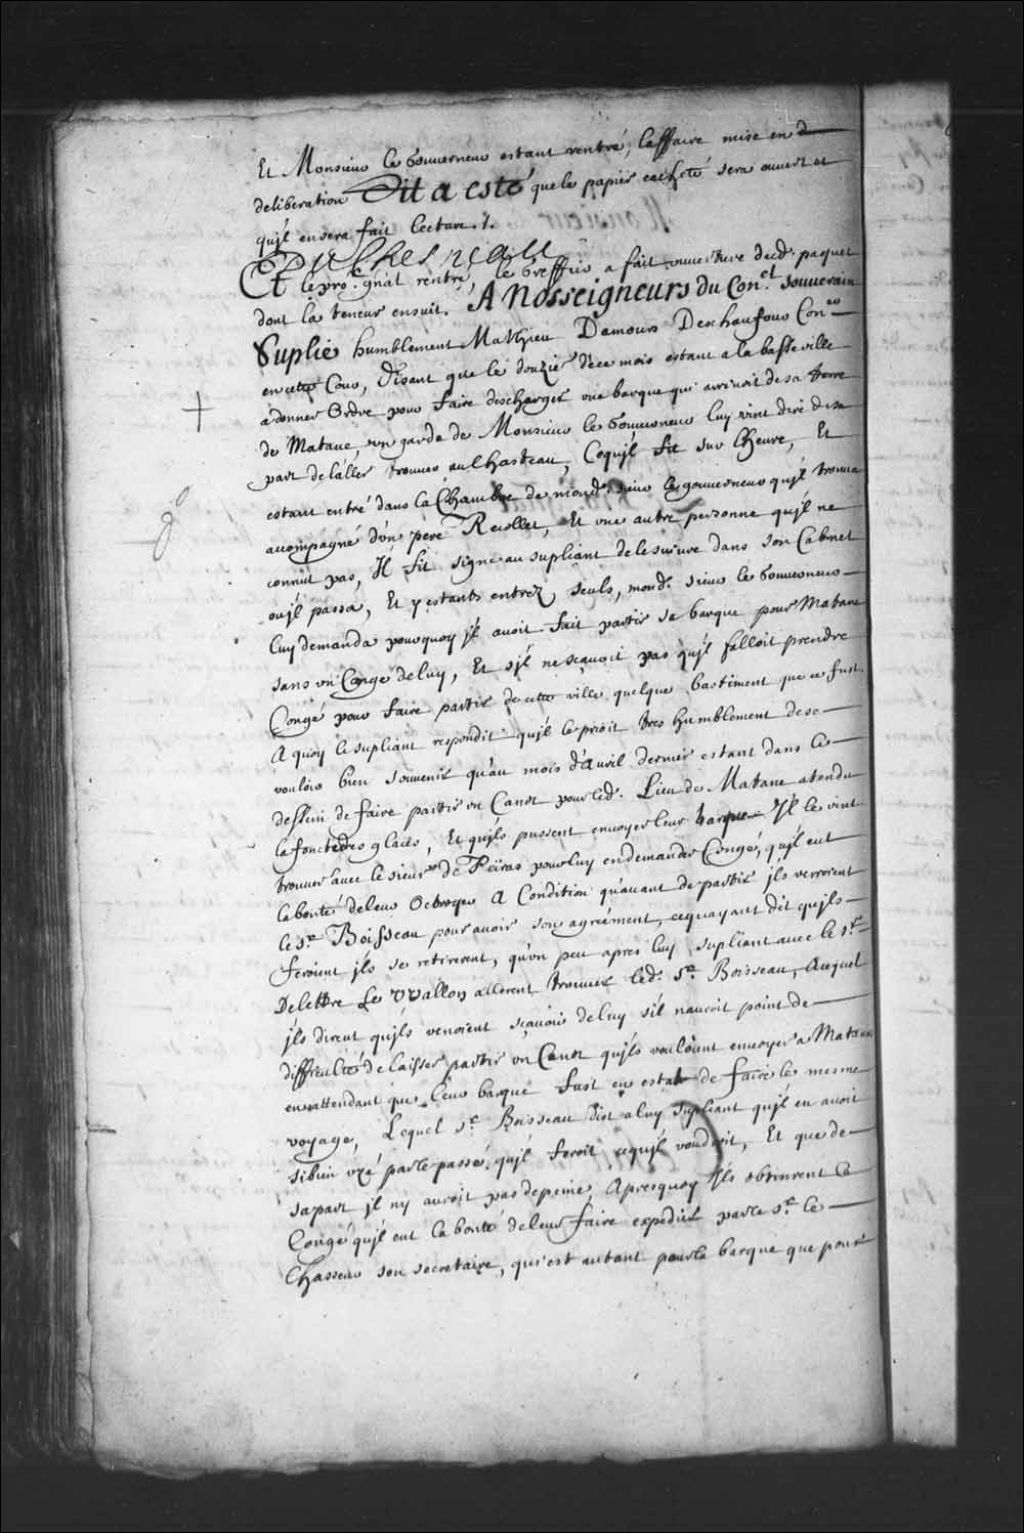 Et Monsieur le Gouverneur estant rentré, l'affaire mise en d
deliberation Dit a esté que le papier cacheté sera ouvert et
qu'jl en sera fait lecture ./.
DuChesneau
Et le pro.r gnãl rentré, le Greffier a fait ouverture dud. paquet
dont la teneur ensuit. A Nosseigneurs du Con.el souverain
Suplie humblement Mathieu Damours Deschaufour Con.er
en cette Cour, Disant que le douzie de ce mois estant a la basse ville
a donner Ordre pour faire descharger une barque qui arrivoit de sa terre
de Matane, un garde de Monsieur le Gouverneur luy vint dire de sa
part de l'aller trouver au Chasteau, Ce qu'jl fit sur l'heure, Et
estant entré dans la Chambre de mond. sieur le gouverneur qu'jl trouva
accompagné d'un pere Recollet, Et une autre personne qu'jl ne
connut pas, Jl fit signe au supliant de le suivre dans son Cabinet
ou jl passa, Et y estants entrez seuls, mond. sieur le Gouverneur
luy demanda pourquoy jl avoit fait partir sa barque pour Matane
sans un Congé de luy, Et s'jl ne sçavoit pas qu'jl falloit prendre
Congé pour faire partir de cette ville quelque bastiment que ce fust
A quoy le supliant respondit qu'jl le prioit tres humblement de se
vouloir bien souvenir qu'au mois d'Avril dernier estant dans le
dessein de faire partir un Canot pour led. Lieu de Matane atendu
la fonte des glaces, Et qu'jls pussent envoyer leur barque Jl le vint
trouver avec le sieur de Peiras pour luy en demander Congé, qu'jl eut
la bonté de leur Octroyer A Condition qu'avant de partir jls verroient
le s.r Boisseau pour avoir son agrément, ce qu'ayant dit qu'jls
feroient jls se retirerent, qu'un peu apres luy supliant avec le s.r
Delettre Le Wallon allerent trouver led. s.r Boisseau, Auquel
jls dirent qu'jls venoient sçavoir de luy s'il n'auroit point de
difficulté de laisser partir un Canot qu'jls vouloient envoyer a Matane
en attendant que leur barque fust en estat de faire le mesme
voyage, Lequel s.r Boisseau dist a luy supliant qu'jl en avoit
si bien uzé par le passé, qu'jl feroit ce qu'jl voudroit, Et que de
sa part jl n'y auroit pas de peine, Apres quoy Jls obtinrent le
Congé qu'jl eut la bonté de leur faire expedier par le s.r le
Chasseur son secretaire, qui est autant pour la barque que pour